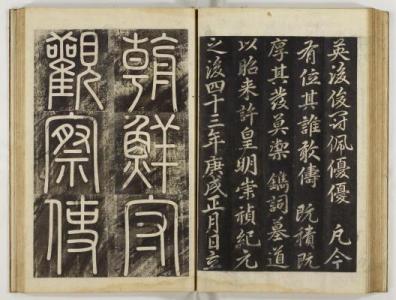 英俊冠佩優優 凡今
有位其誰敢儔 既積既
厚其發莫禦 鐫詞墓道
以昭來許皇明崇禎紀元
之後四十三年庚戌正月日立
朝鮮守
觀察使